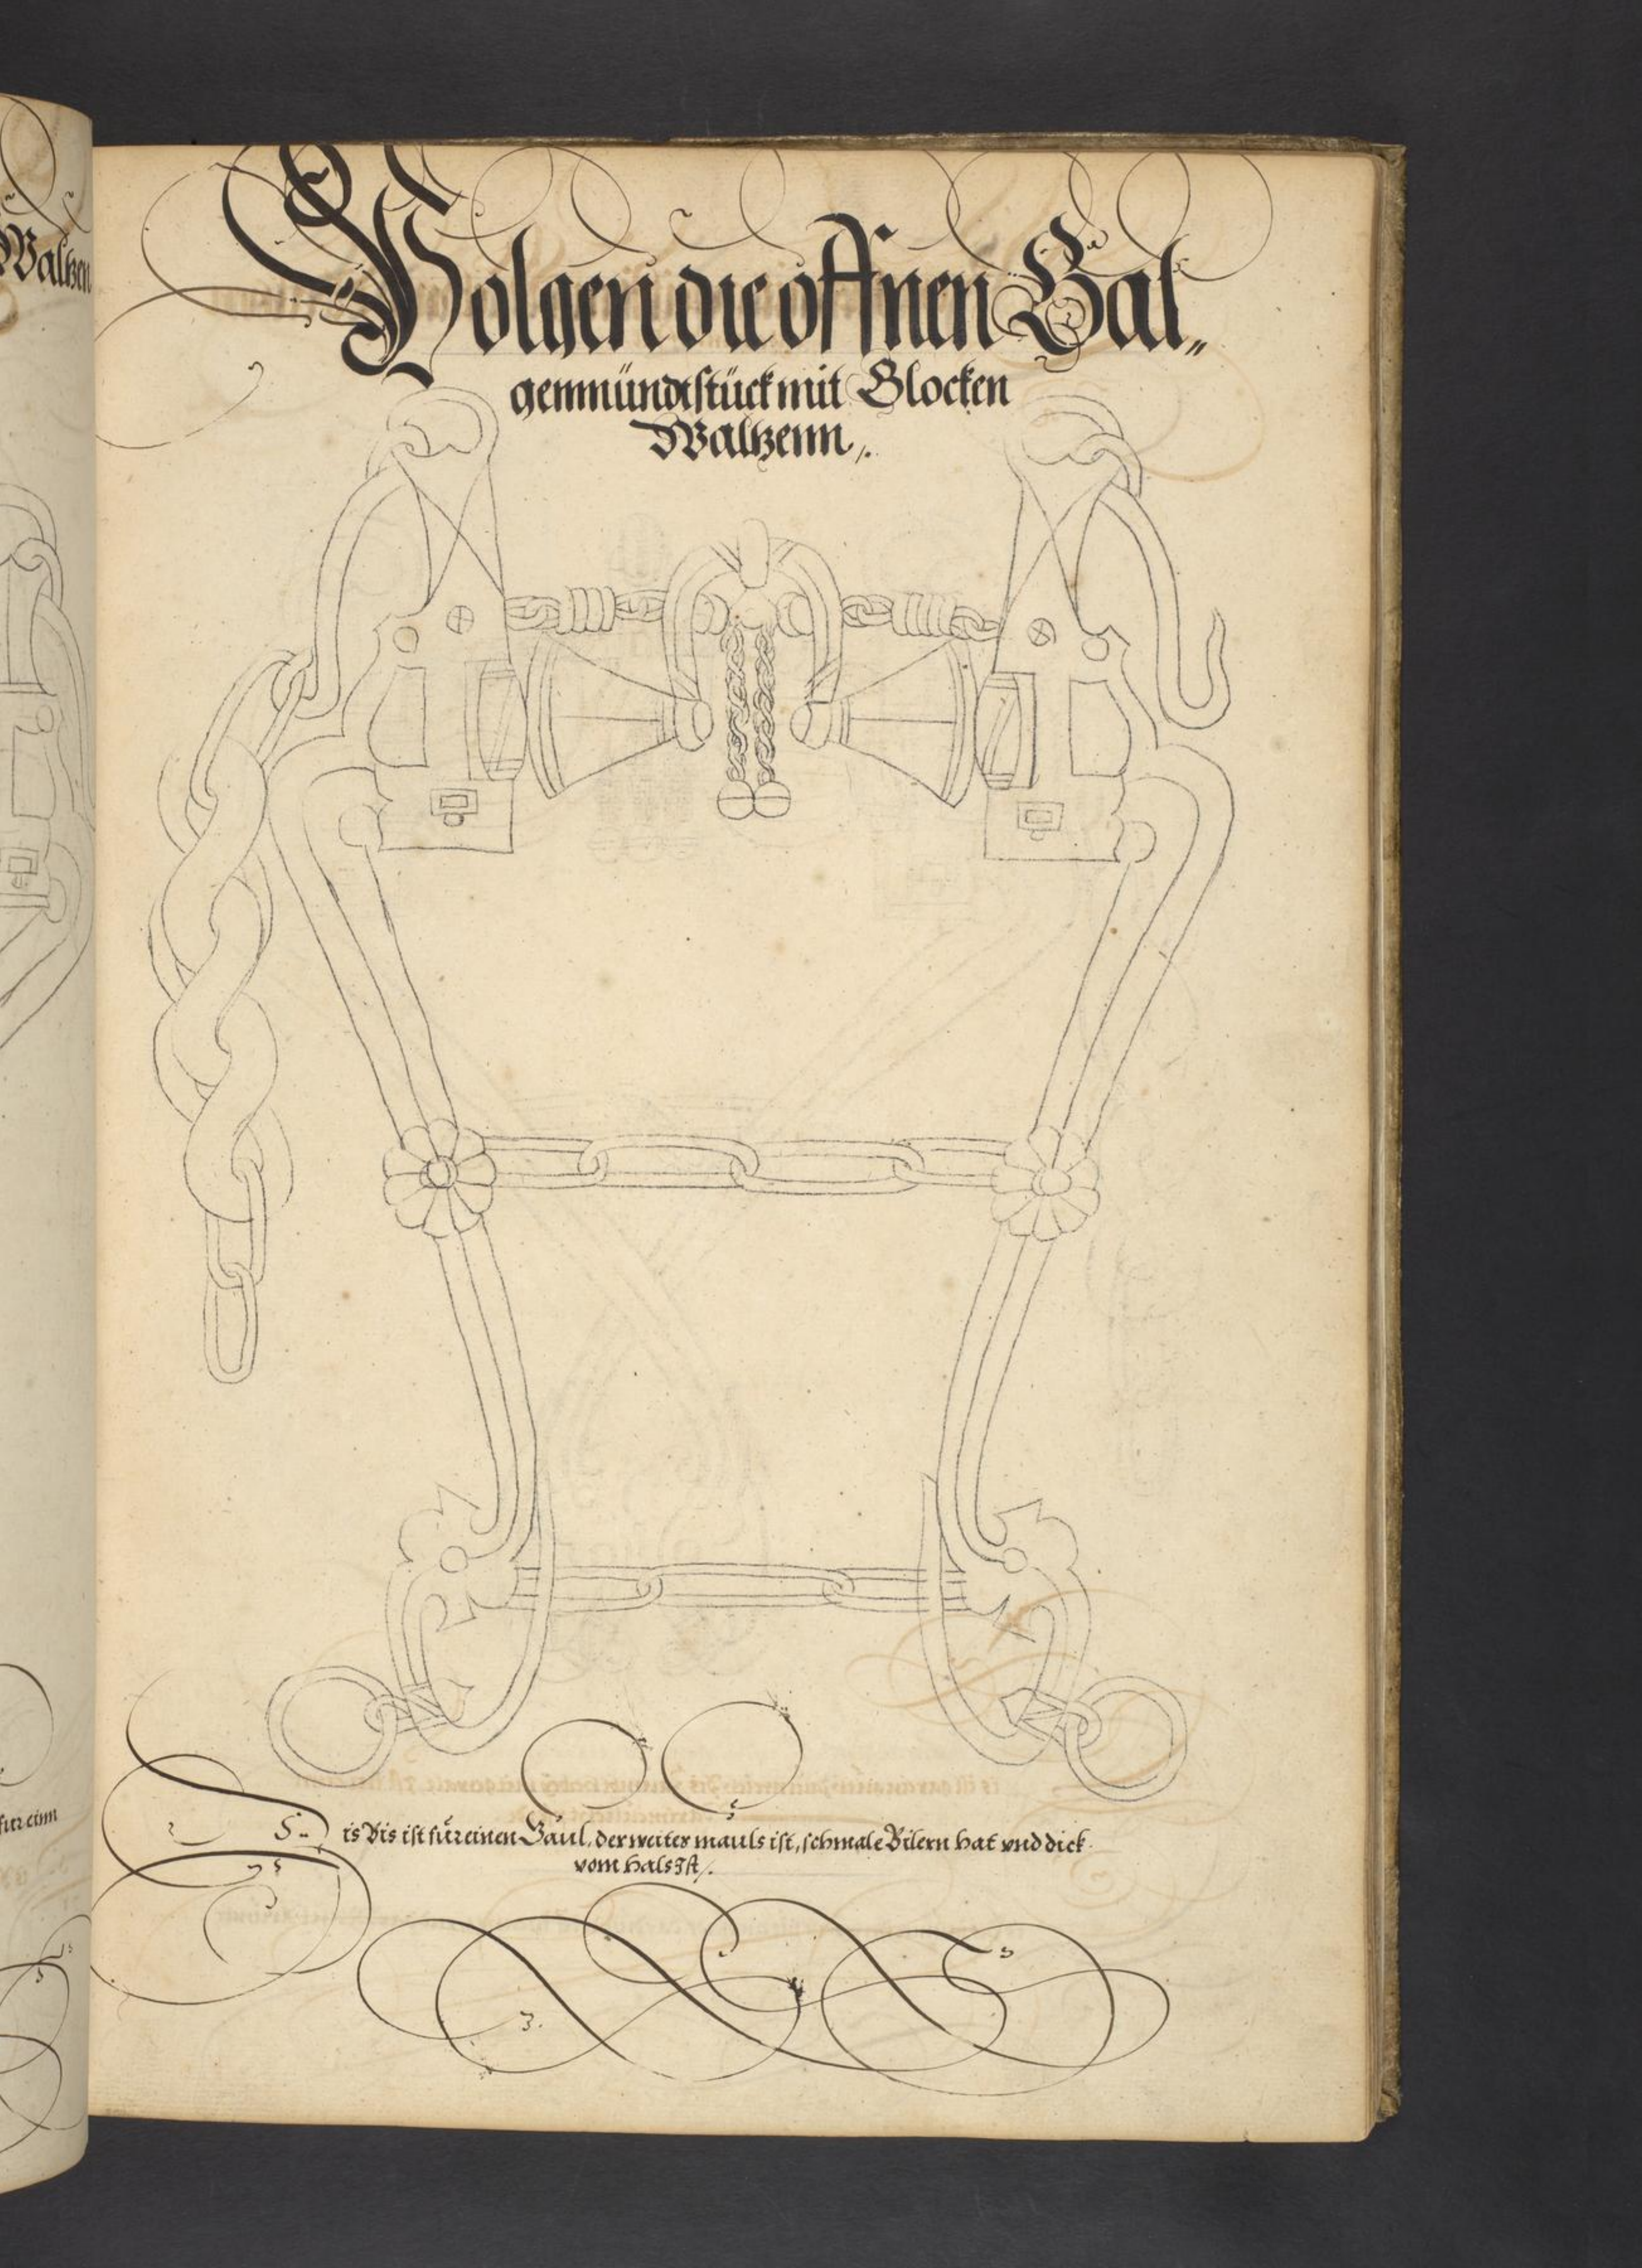 Waltzen
Volgen die offnen Gal„
genmündtstück mit Glocken
Waltzenn„.
für einn
Dis Bis ist für einen Gaul, der weiter mauls ist, schmale Bilern hat vnd dick
vom hals Jst/.